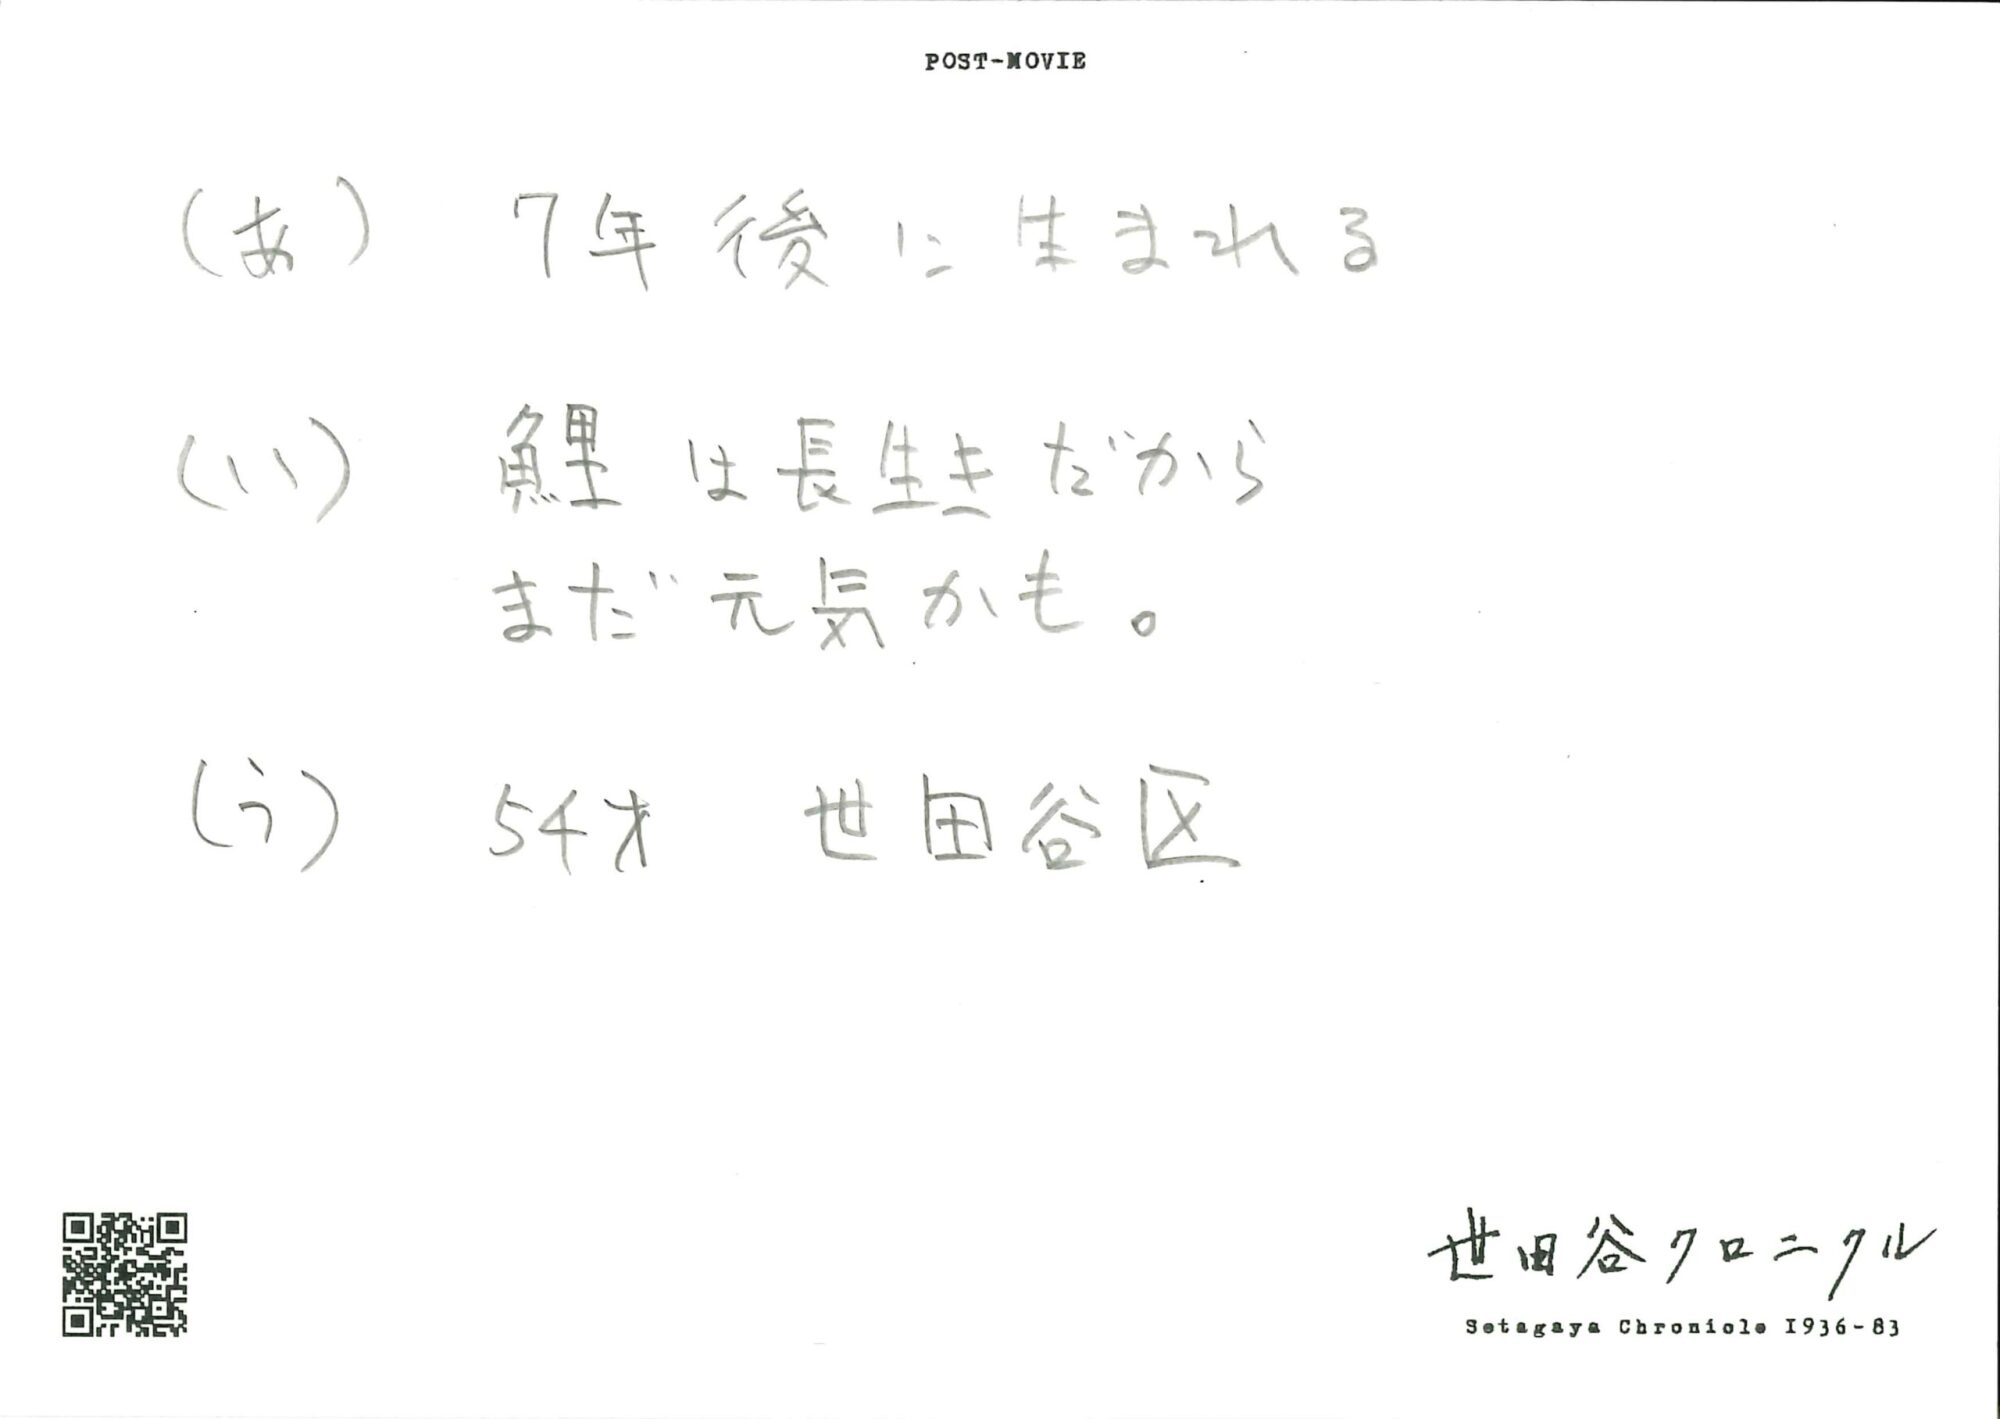 POST-MOVIE
(あ) 7年後に生まれる
(い) 鯉は長生きだから
まだ元気かも。
(う) 54才 世田谷区
世田谷クロニクル
Setagaya Chronicle 1936-83